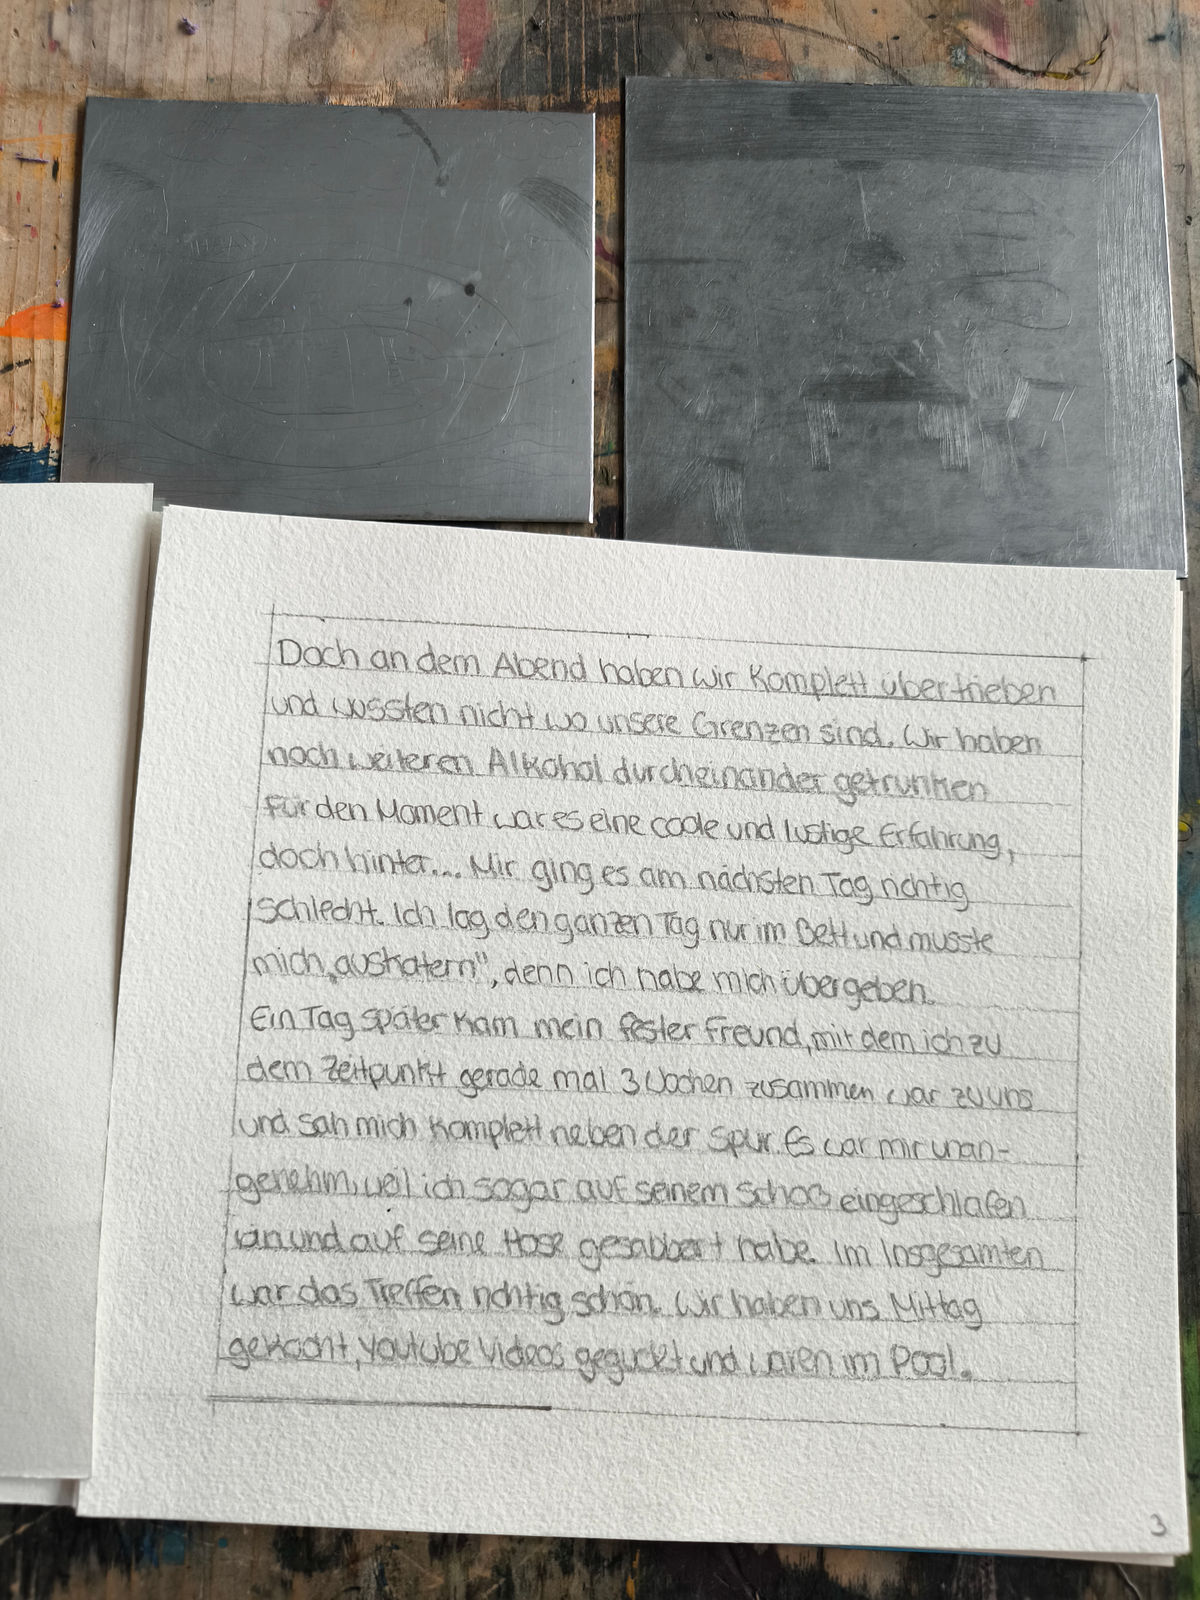 Doch an dem Abend haben wir komplett übertrieben
und wussten nicht wo unsere Grenzen sind. Wir haben
noch weiteren Alkohol durcheinander getrunken
Für den Moment war es eine coole und lustige Erfahrung,
doch hinter... Mir ging es am nächsten Tag richtig
schlecht. Ich lag den ganzen Tag nur im Bett und musste
mich „auskatern", denn ich habe mich übergeben.
Ein Tag später kam mein fester Freund, mit dem ich zu
dem Zeitpunkt gerade mal 3 Wochen zusammen war zu uns
und sah mich komplett neben der Spur. Es war mir unan-
genehm, weil ich sogar auf seinem Schoß eingeschlafen
bin und auf seine Hose gesabbert habe. Im Insgesamten
war das Treffen richtig schön. Wir haben uns Mittag
gekocht, YouTube Videos geguckt und waren im Pool.
3